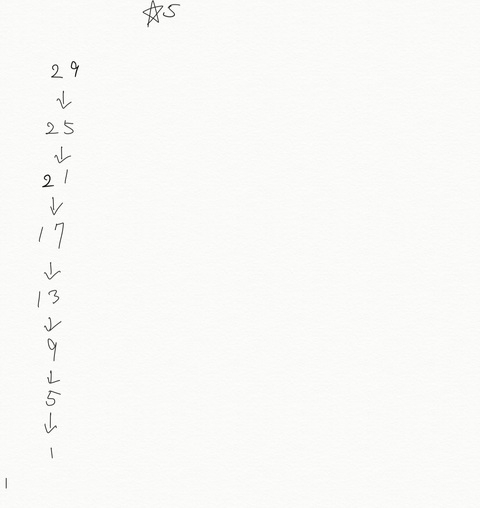 ☆5
29
↓
25
↓
21
↓
17
↓
13
↓
9
↓
5
↓
1
1